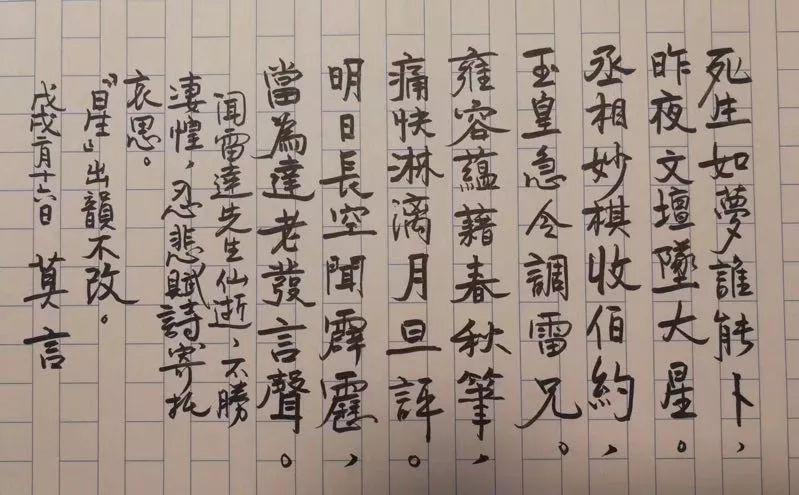 死生如夢誰能卜，
昨夜文壇墜大星。
丞相妙棋收伯約，
玉皇急令調雷兄。
雍容蘊藉春秋筆，
痛快淋漓月旦評。
明日長空聞霹靂，
當為達老發言聲。
聞雷達先生仙逝，不勝
淒惶，忍悲賦詩寄托
哀思。
“星”出韻不改。
戊戌二月十六日 莫言